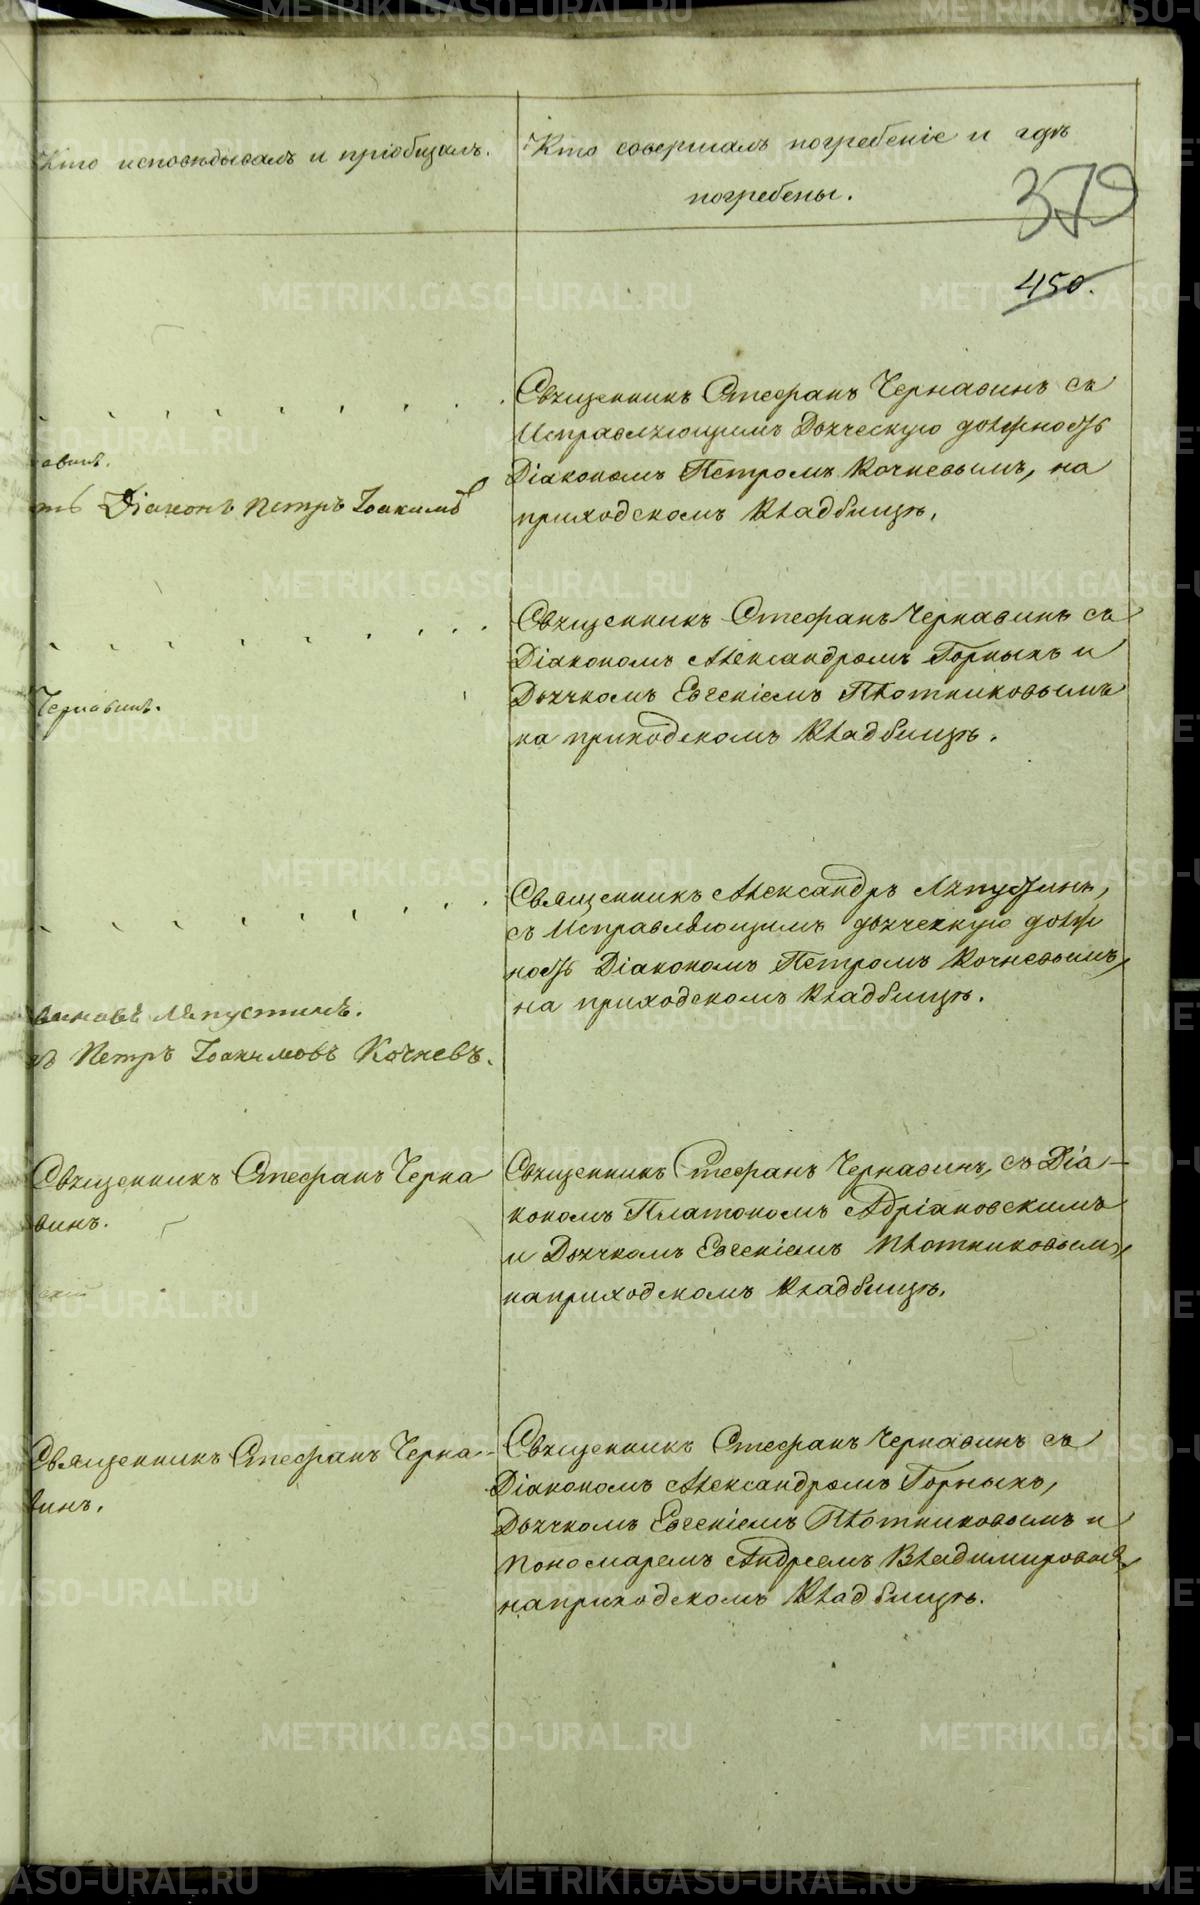 Кто исповѣдывалъ и пріобщалъ.
Кто совершалъ погребеніе и гдѣ
погребены.
379
450.
Священникъ Стефанъ Чернавинъ съ
Исправляющимъ Дьяческую должность
Діакономъ Петромъ Кочневымъ, на
приходскомъ Кладбищѣ.
авинъ.
Діаконъ Петръ Іоакимовъ
Священникъ Стефанъ Чернавинъ съ
Діакономъ Александромъ Горныхъ и
Дьячкомъ Евгеніемъ Плотниковымъ
на приходскомъ Кладбищѣ.
Чернавинъ.
Священникъ Александръ Ляпустинъ,
съ Исправляющимъ дьяческую долж
ность Діакономъ Петромъ Кочневымъ,
на приходскомъ Кладбищѣ.
Ляпустинъ.
Петръ Іоакимовъ Кочневъ.
Священникъ Стефанъ Черна
винъ.
Священникъ Стефанъ Чернавинъ, съ Діа-
кономъ Платономъ Адріановскимъ
и Дьячкомъ Евгеніемъ Плотниковымъ,
на приходскомъ Кладбищѣ.
Священникъ Стефанъ Черна-
винъ.
Священникъ Стефанъ Чернавинъ съ
Діакономъ Александромъ Горныхъ,
Дьячкомъ Евгеніемъ Плотниковымъ и
Пономаремъ Андреемъ Владимировымъ
на приходскомъ Кладбищѣ.
METRIKI.GASO-URAL.RU